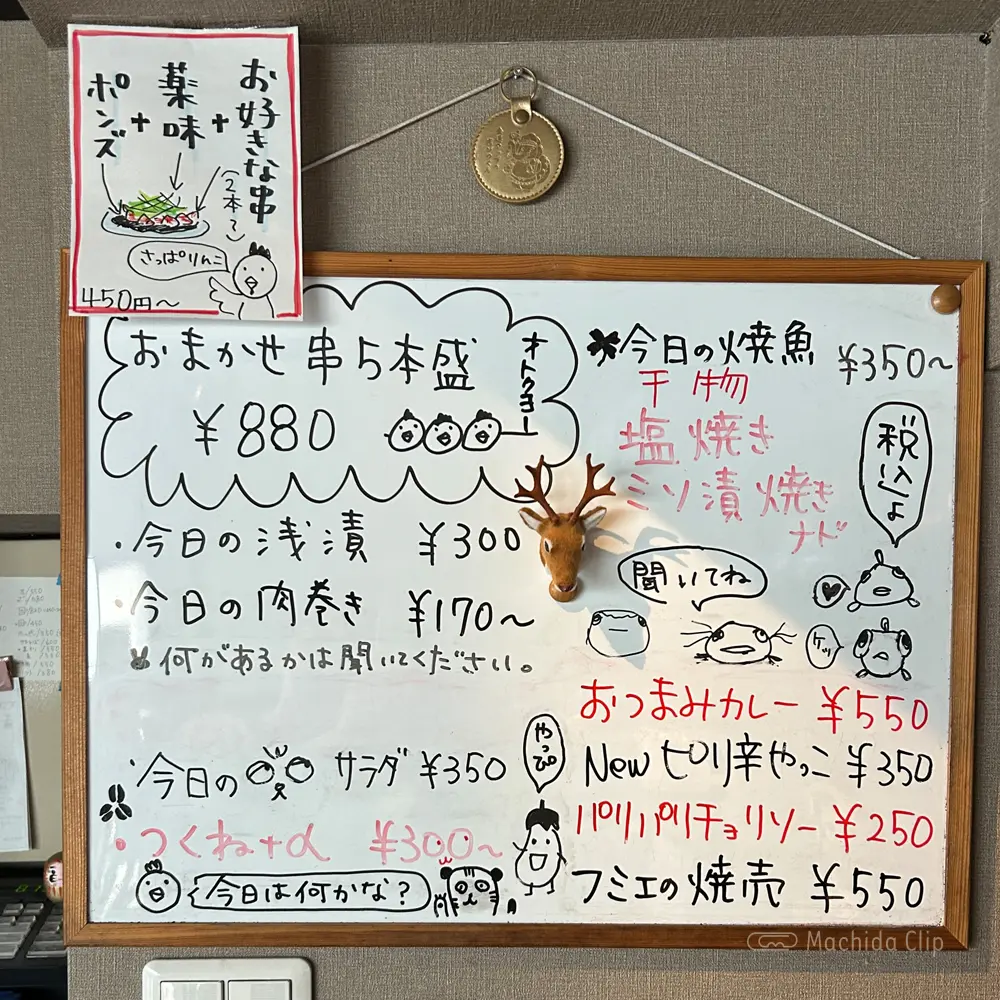 お好きな串
(2本〜)
+
薬味
+
ポンズ
さっぱりんこ
450円〜
おまかせ串5本盛
¥880
オトクヨー
・今日の浅漬 ¥300
・今日の肉巻き ¥170〜
何があるかは聞いてください。
・今日の サラダ ¥350
・つくね+α ¥300〜
今日は何かな?
今日の焼魚 ¥350〜
干物
塩焼き
ミソ漬焼き
ナド
税込よ
聞いてね
ケッ
おつまみカレー ¥550
New ピリ辛やっこ ¥350
パリパリチョリソー ¥250
フミエの焼売 ¥550
Machida Clip